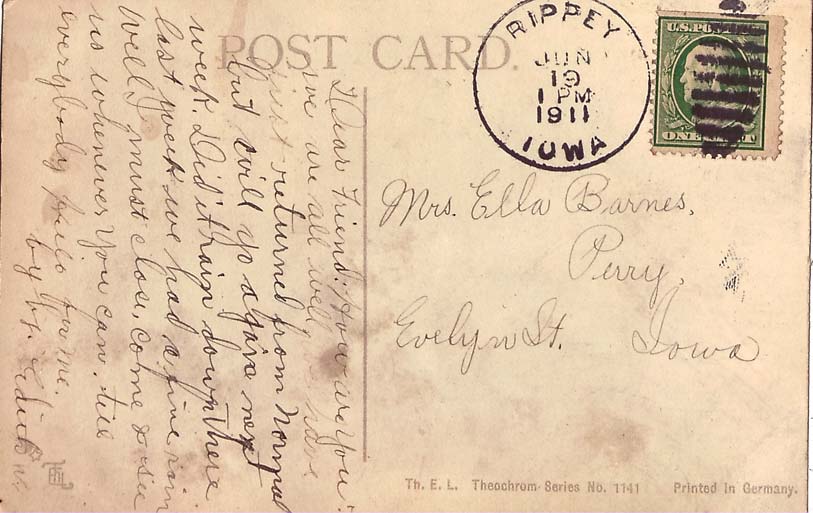 POST CARD.
RIPPEY
JUN
19
1 PM
1911
IOWA
U.S. POSTAGE
ONE CENT
Dear Friend: How are you
we are all well, have
just returned from Normal
but will go again next
week. Did it rain down there
last week we had a fine rain
Well I must close, come & see
us whenever you can. tell
everybody hello for me.
by by. Edith W.
Mrs. Ella Barnes,
Perry,
Evelyn St. Iowa
Th. E. L. Theochrom Series No. 1141 Printed in Germany.